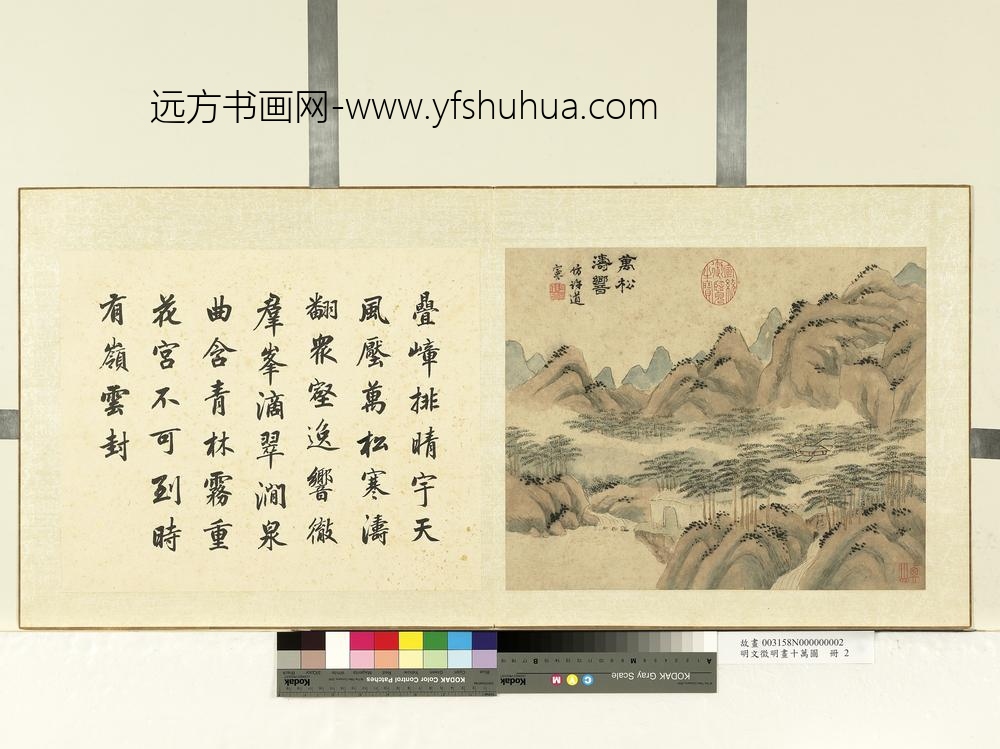 远方书画网-www.yfshuhua.com
萬松
濤響
仿許道
寧
疊嶂排晴宇天
風壓萬松寒濤
翻衆壑逸響徹
羣峯滴翠澗泉
曲含青林霧重
花宮不可到時
有嶺雲封
故畫 003158N000000002
明文徵明畫十萬圖 冊 2
Kodak Color Control Patches
Blue Cyan Green Yellow Red Magenta White 3/Color Black
Kodak
KODAK Gray Scale
C Y M
Kodak
A 1 2 3 4 5 6 M 8 9 10 11 12 13 14 15 B 17 18 19